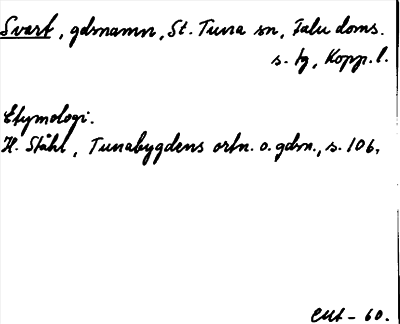 Svart, gdsnamn, St. Tuna sn, Falu doms.
s. tg, Kopp. l.
Etymologi.
H. Ståhl, Tunabygdens ortn. o. gdsn., s. 106.
60.